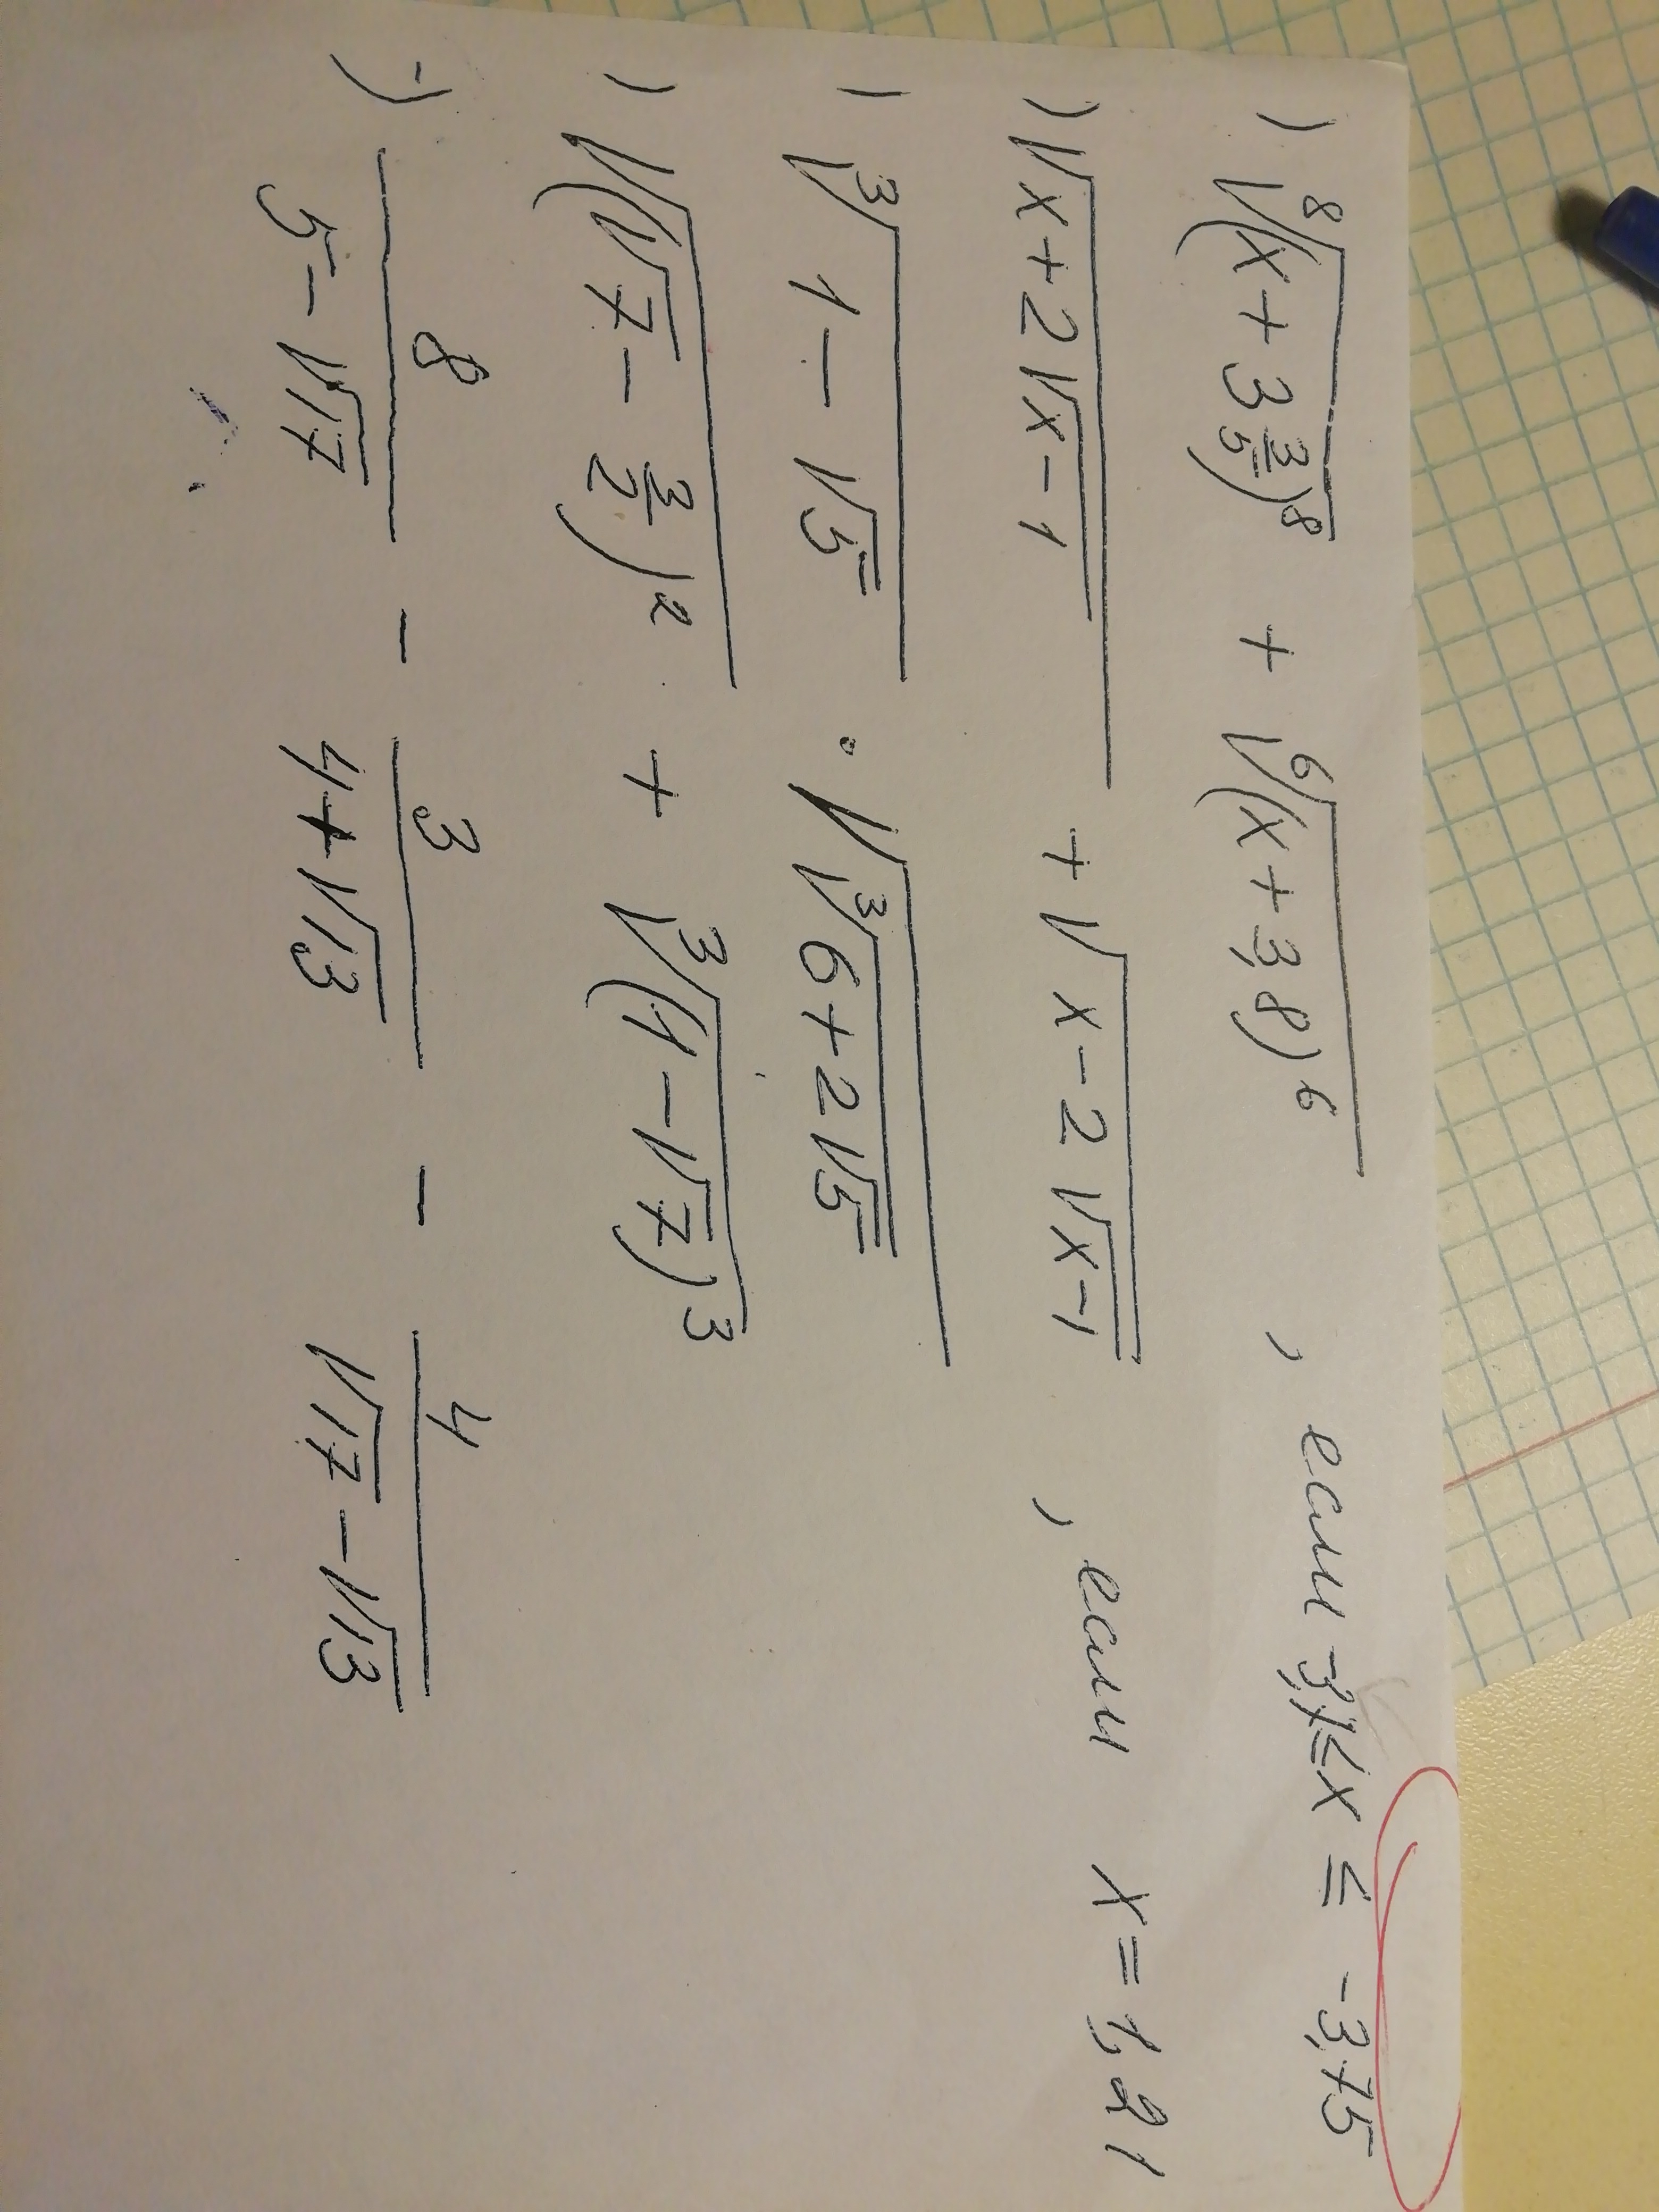 ) ⁸√(x + 3 3/5)⁸ + ⁶√(x + 3,8)⁶ , если ≤ x ≤ -3,75
) √(x + 2√(x - 1)) + √(x - 2√(x - 1)) , если x = 1,21
) ³√(1 - √5) · √(³√(6 + 2√5))
) √((√7 - 3/2)²) + ³√((1 - √7)³)
-) 8/(5 - √17) - 3/(4 + √13) - 4/(√17 - √13)